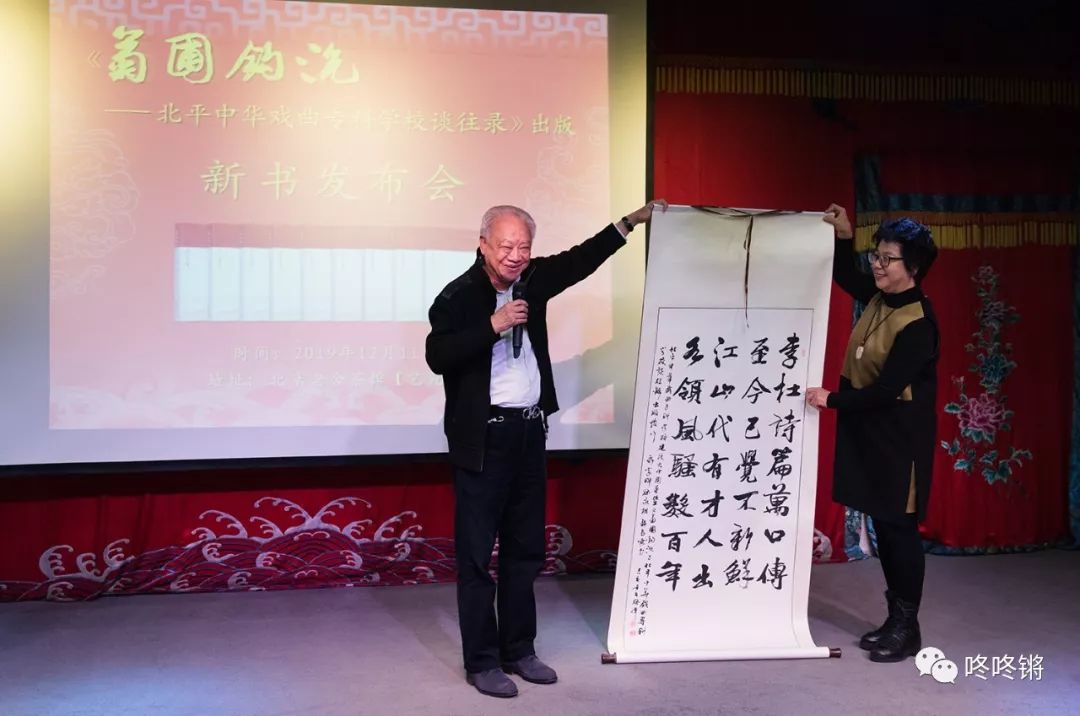 《翁圃钩沉
——北平中华戏曲专科学校谈往录》出版
新书发布会
时间：2019年12月11
地址：北京老舍茶馆【艺
李杜詩篇萬口傳
至今已覺不新鮮
江山代有才人出
各領風騷數百年
咚咚锵